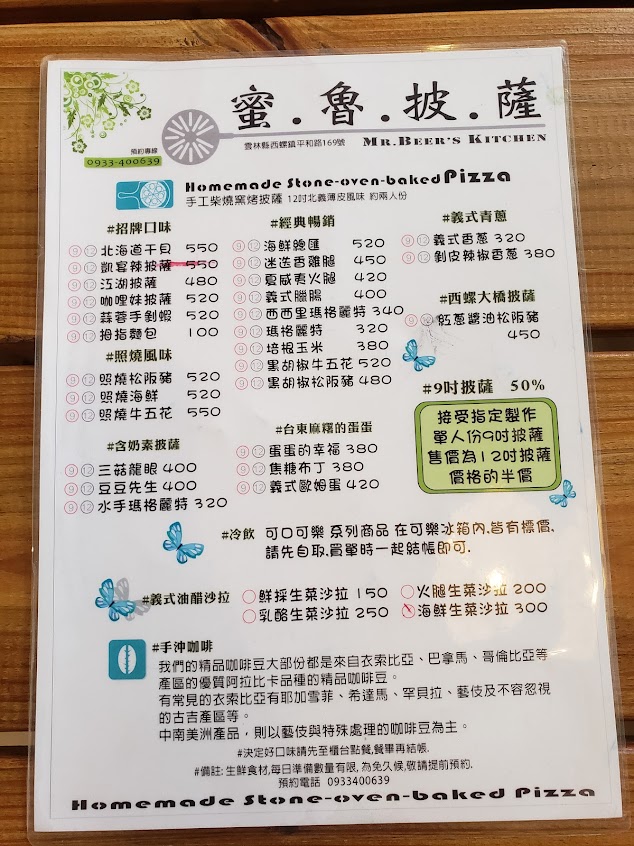 蜜.魯.披.薩
雲林縣西螺鎮平和路169號 MR.BEER'S KITCHEN
預約專線
0933-400639
Homemade Stone-oven-baked Pizza
手工柴燒窯烤披薩 12吋北義薄皮風味 約兩人份
#招牌口味
9 12 北海道干貝 550
9 12 凱宴辣披薩 550
9 12 江湖披薩 480
9 12 咖哩妹披薩 520
9 12 蒜蓉手剝蝦 520
9 12 拇指麵包 100
#照燒風味
9 12 照燒松阪豬 520
9 12 照燒海鮮 520
9 12 照燒牛五花 550
#含奶素披薩
9 12 三菇龍眼 400
9 12 豆豆先生 400
9 12 水手瑪格麗特 320
#經典暢銷
9 12 海鮮總匯 520
9 12 迷迭香雞腿 450
9 12 夏威夷火腿 420
9 12 義式臘腸 400
9 12 西西里瑪格麗特 340
9 12 瑪格麗特 320
9 12 培根玉米 380
9 12 黑胡椒牛五花 520
9 12 黑胡椒松阪豬 480
#台東麻糬的蛋蛋
9 12 蛋蛋的幸福 380
9 12 焦糖布丁 380
9 12 義式歐姆蛋 420
#義式青蔥
9 12 義式香蔥 320
9 12 剝皮辣椒香蔥 380
#西螺大橋披薩
9 12 胚蔥醬油松阪豬
450
#9吋披薩 50%
接受指定製作
單人份9吋披薩
售價為12吋披薩
價格的半價
#冷飲 可口可樂 系列商品 在可樂冰箱內,皆有標價,
請先自取,買單時一起結帳即可.
#義式油醋沙拉 鮮採生菜沙拉 150 火腿生菜沙拉 200
乳酪生菜沙拉 250 海鮮生菜沙拉 300
#手沖咖啡
我們的精品咖啡豆大部份都是來自衣索比亞、巴拿馬、哥倫比亞等
產區的優質阿拉比卡品種的精品咖啡豆。
有常見的衣索比亞有耶加雪菲、希達馬、罕貝拉、藝伎及不容忽視
的古吉產區等。
中南美洲產品，則以藝伎與特殊處理的咖啡豆為主。
#決定好口味請先至櫃台點餐,餐畢再結帳.
#備註: 生鮮食材,每日準備數量有限, 為免久候,敬請提前預約.
預約電話 0933400639
Homemade Stone-oven-baked Pizza